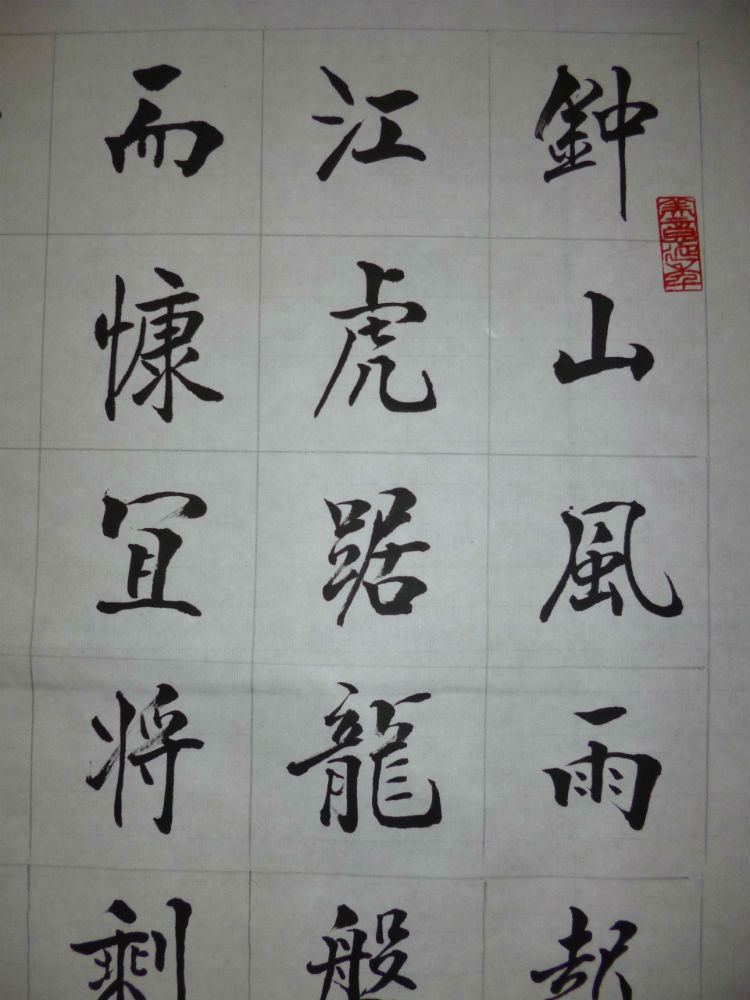 鈡山風雨起
江虎踞龍般
而慷冝将剩